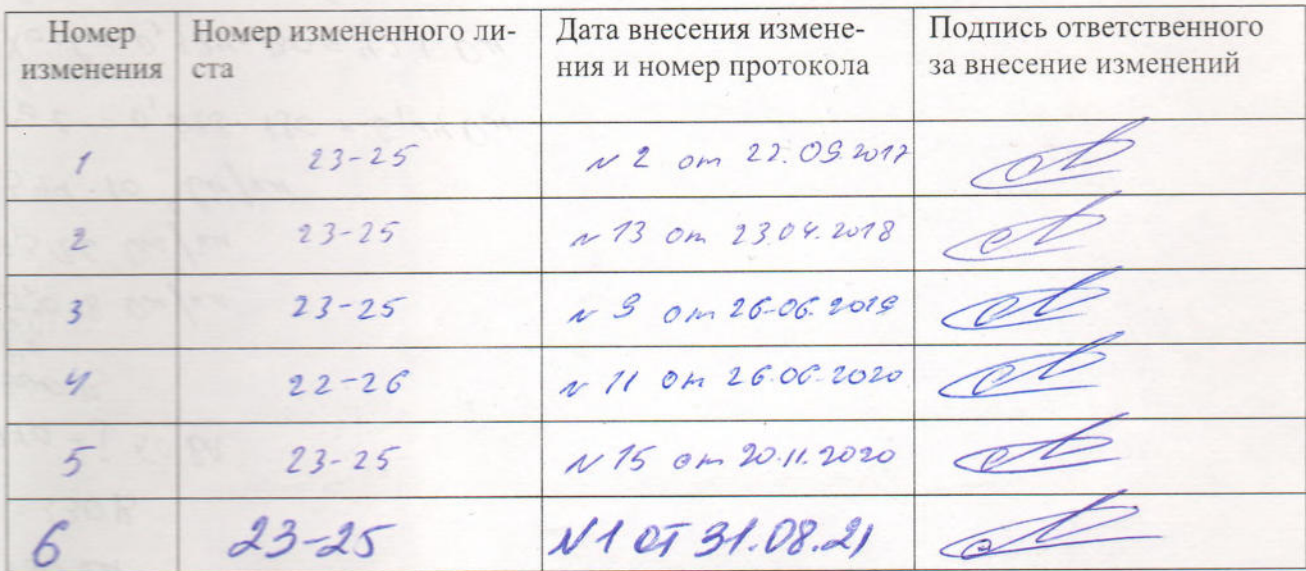 Номер изменения Номер измененного ли-ста Дата внесения измене-ния и номер протокола Подпись ответственного за внесение изменений
1 23-25 N 2 от 22.09.2017
2 23-25 N 13 от 23.04.2018
3 23-25 N 9 от 26.06.2019
4 22-26 N 11 от 26.06.2020
5 23-25 N 15 от 20.11.2020
6 23-25 N1 от 31.08.21